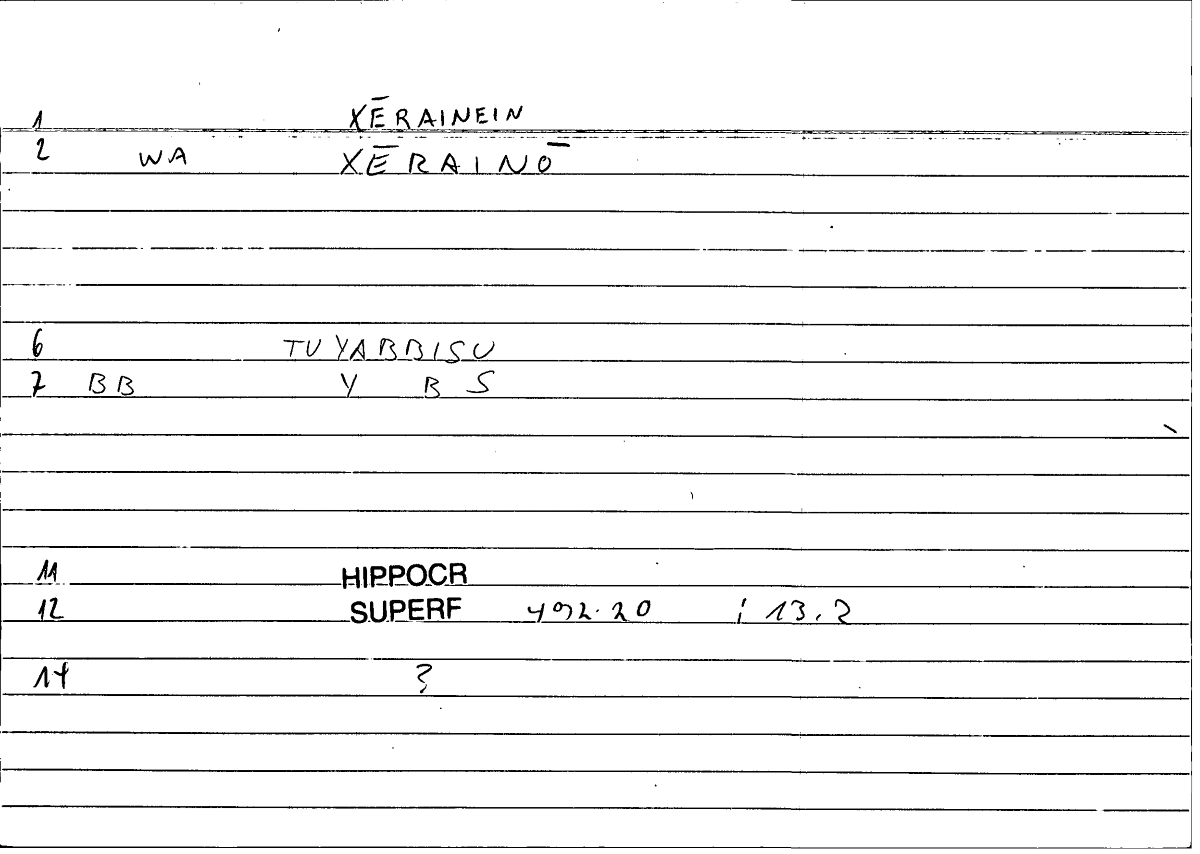 1 XĒRAINEIN
2 WA XĒRAINŌ
6 TUYABBISU
7 BB Y B S
11 HIPPOCR
12 SUPERF 492.20 ; 13.2
14 ?